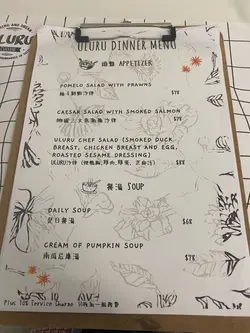 ULURU
ULURU DINNER MENU
頭盤 APPETIZER
POMELO SALAD WITH PRAWNS
柚子鮮蝦沙律 $78
CAESAR SALAD WITH SMOKED SALMON
$78
ULURU CHEF SALAD (SMOKED DUCK
BREAST, CHICKEN BREAST AND EGG,
ROASTED SESAME DRESSING)
ULURU沙律 $88
餐湯 SOUP
DAILY SOUP
是日餐湯 $68
CREAM OF PUMPKIN SOUP
南瓜忌廉湯 $78
Plus 10% Service Charge 另收加一服務費